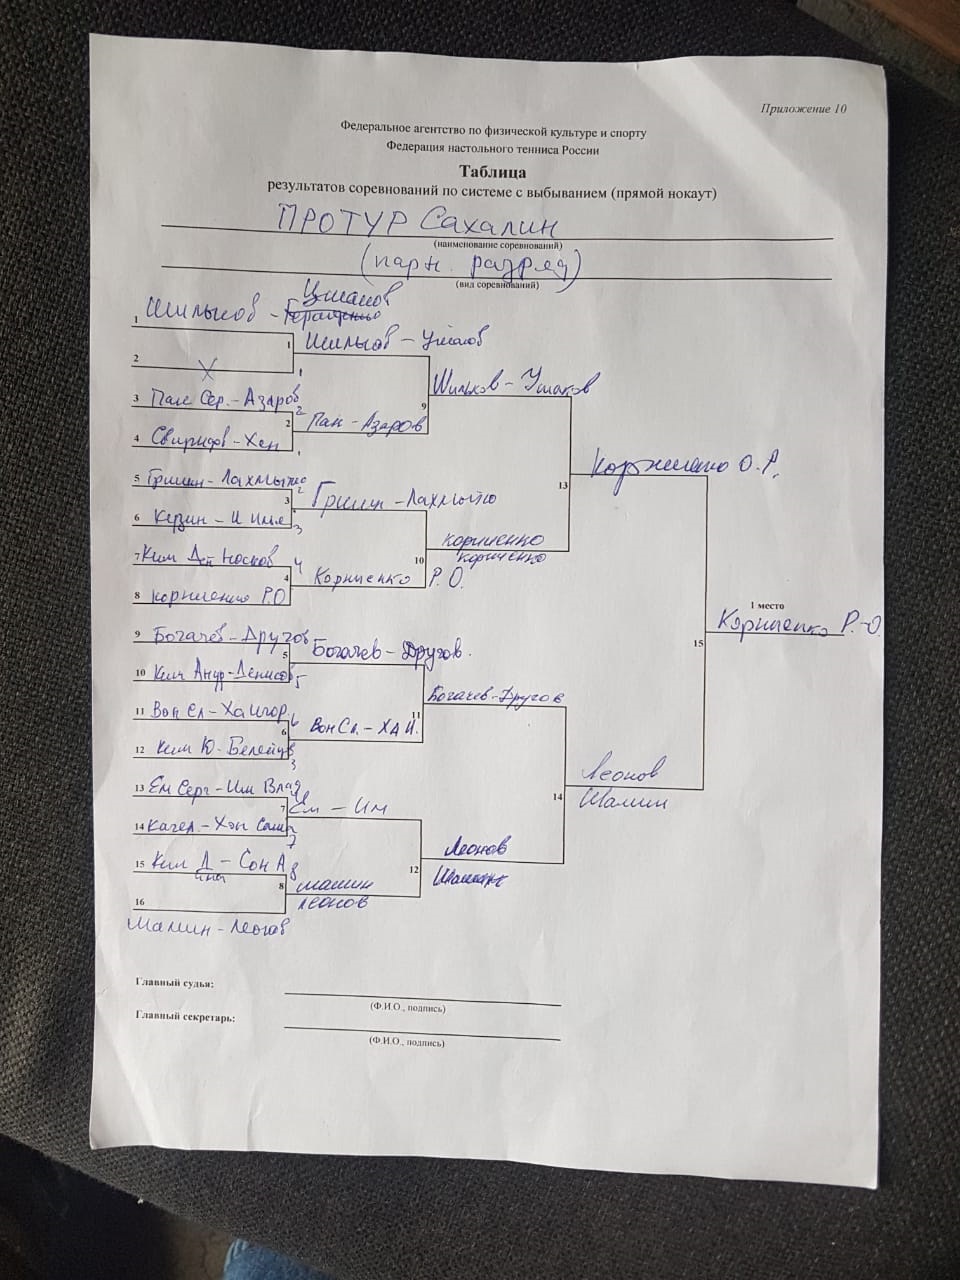 Приложение 10
Федеральное агентство по физической культуре и спорту
Федерация настольного тенниса России
Таблица
результатов соревнований по системе с выбыванием (прямой нокаут)
ПРОТУР Сахалин
(наименование соревнований)
(парн. разряд)
(вид соревнований)
Ушаков
1 Шильков -
1 Шильков - Ушаков
2 X 1
Шильков - Ушаков
3 Пак Сер. - Азаров 2
9
2 Пак - Азаров
4 Свиридов - Хен 1
Корниенко О.Р.
13
5 Гришин - Лахмытко 2
3 Гришин - Лахмытко
6 Керзин - И 3
Корниенко
Корниенко
7 Ким Ден Носков 4
10
4 Корниенко Р.О.
8 Корниенко Р.О
1 место
Корниенко Р.О.
15
9 Богачев - Другов
5 Богачев - Другов.
10 Ким Анур - Денисов 5
Богачев - Другов
11 Вон Сл - Ха Игор. 6
11
6 Вон Сл. - ХА И.
12 Ким Ю. - Белейцев 3
Леонов
Шамин
14
13 Ем Серг - Им Влад
7 Ем - Им
14 - Хэн 7
Леонов
Шамин
15 Ким Д - Сон А 8
12
8 Шамин
Леонов
16
Шамин - Леонов
Главный судья:
(Ф.И.О., подпись)
Главный секретарь:
(Ф.И.О., подпись)